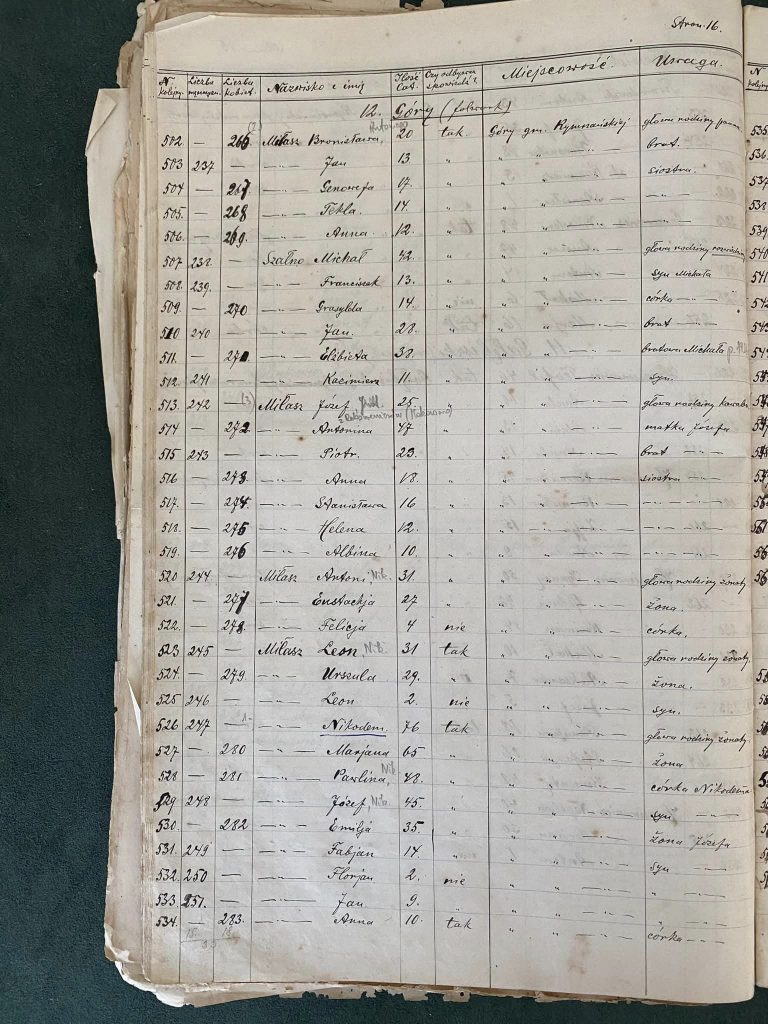 Stron. 16.
N kolejny. Liczba mężczyzn. Liczba kobiet. Nazwisko i imię Ilość lat. Czy odbywa spowiedź? Miejscowość. Uwaga.
12. Góry (folwark)
502 — 266 (2) Miłasz Bronisława, 20 tak Góry gm. Rymszańskiej głowa rodziny panna
503 237 — —"— Jan 13 " " " —"— brat.
504 — 267 —"— Genowefa 17. " " " —"— siostra.
505. — 268 —"— Tekla 14. " " " —"— —"—
506. — 269. —"— Anna 12. " " " —"— —"—
507 238. — Szałno Michał 42. " " " —"— głowa rodziny
508. 239. — —"— Franciszek 13. " " " —"— syn Michała
509. — 270 —"— Grasylda 14. " " " —"— córka —"—
510 240 — —"— Jan. 28. " " " —"— brat —"—
511. — 271 —"— Elżbieta 38. " " " —"— bratowa Michała
512. 241 — —"— Kazimierz 11. " " " —"— syn.
513. 242 — (3) Miłasz Józef 25. " " " —"— głowa rodziny kawaler
514 — 272 —"— Antonina 47 " " " —"— matka Józefa
515 243 — —"— Piotr. 23. " " " —"— brat —"—
516 — 273. —"— Anna 18. " " " —"— siostra —"—
517. — 274. —"— Stanisława 16 " " " —"— —"— —"—
518. — 275 —"— Helena 12. " " " —"— —"— —"—
519. — 276 —"— Albina 10. " " " —"— —"— —"—
520 244. — Miłasz Antoni, Nik. 31. " " " —"— głowa rodziny żonaty
521. — 277 —"— Eustachja 27 " " " —"— żona.
522. — 278. —"— Felicja 4 nie " " —"— córka.
523 245 — Miłasz Leon, Nik. 31 tak " " —"— głowa rodziny żonaty.
524. — 279 —"— Urszula 29. " " " —"— żona.
525 246 — —"— Leon 2. nie " " —"— syn.
526 247 — 1- —"— Nikodem. 76 tak " " —"— głowa rodziny żonaty
527 — 280 —"— Marjana 65 " " " —"— żona
528 — 281 —"— Pawlina, Nik. 48. " " " —"— córka Nikodema
529 248 — —"— Józef Nik. 45. " " " —"— syn —"—
530. — 282 —"— Emilja 35. " " " —"— żona Józefa
531. 249 — —"— Fabjan 14. " " " —"— syn —"—
532. 250 — —"— Florjan 2. nie " " —"— " —"—
533. 251. — —"— Jan 9. " " " —"— " —"—
534. — 283. —"— Anna 10. tak " " —"— córka —"—
15. 18.
33
N kolejny
535
536.
537
538
539
540
541